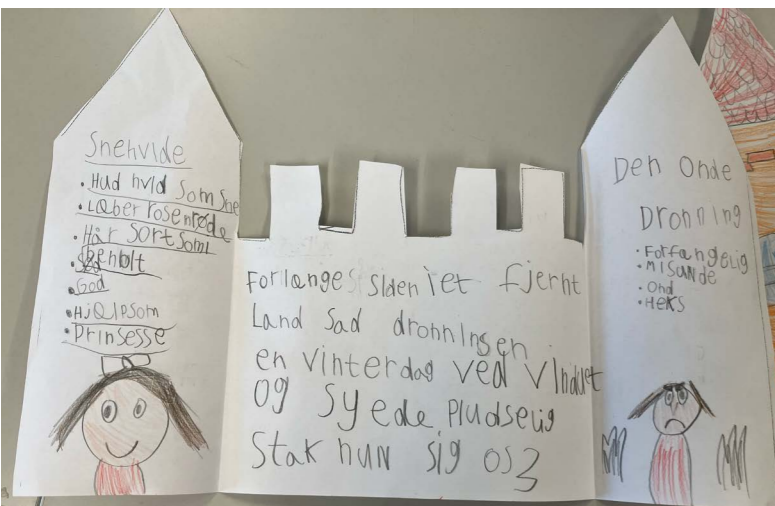 Snehvide
• Hud hvid som sne
• Læber rosenrøde
• Hår sort som
ibenholt
• God
• Hjælpsom
• Prinsesse
For længe siden i et fjernt
Land sad dronningen
en vinterdag ved vinduet
og syede Pludselig
Stak hun sig og
Den Onde
Dronning
• Forfængelig
• Misunde
• Ond
• Heks